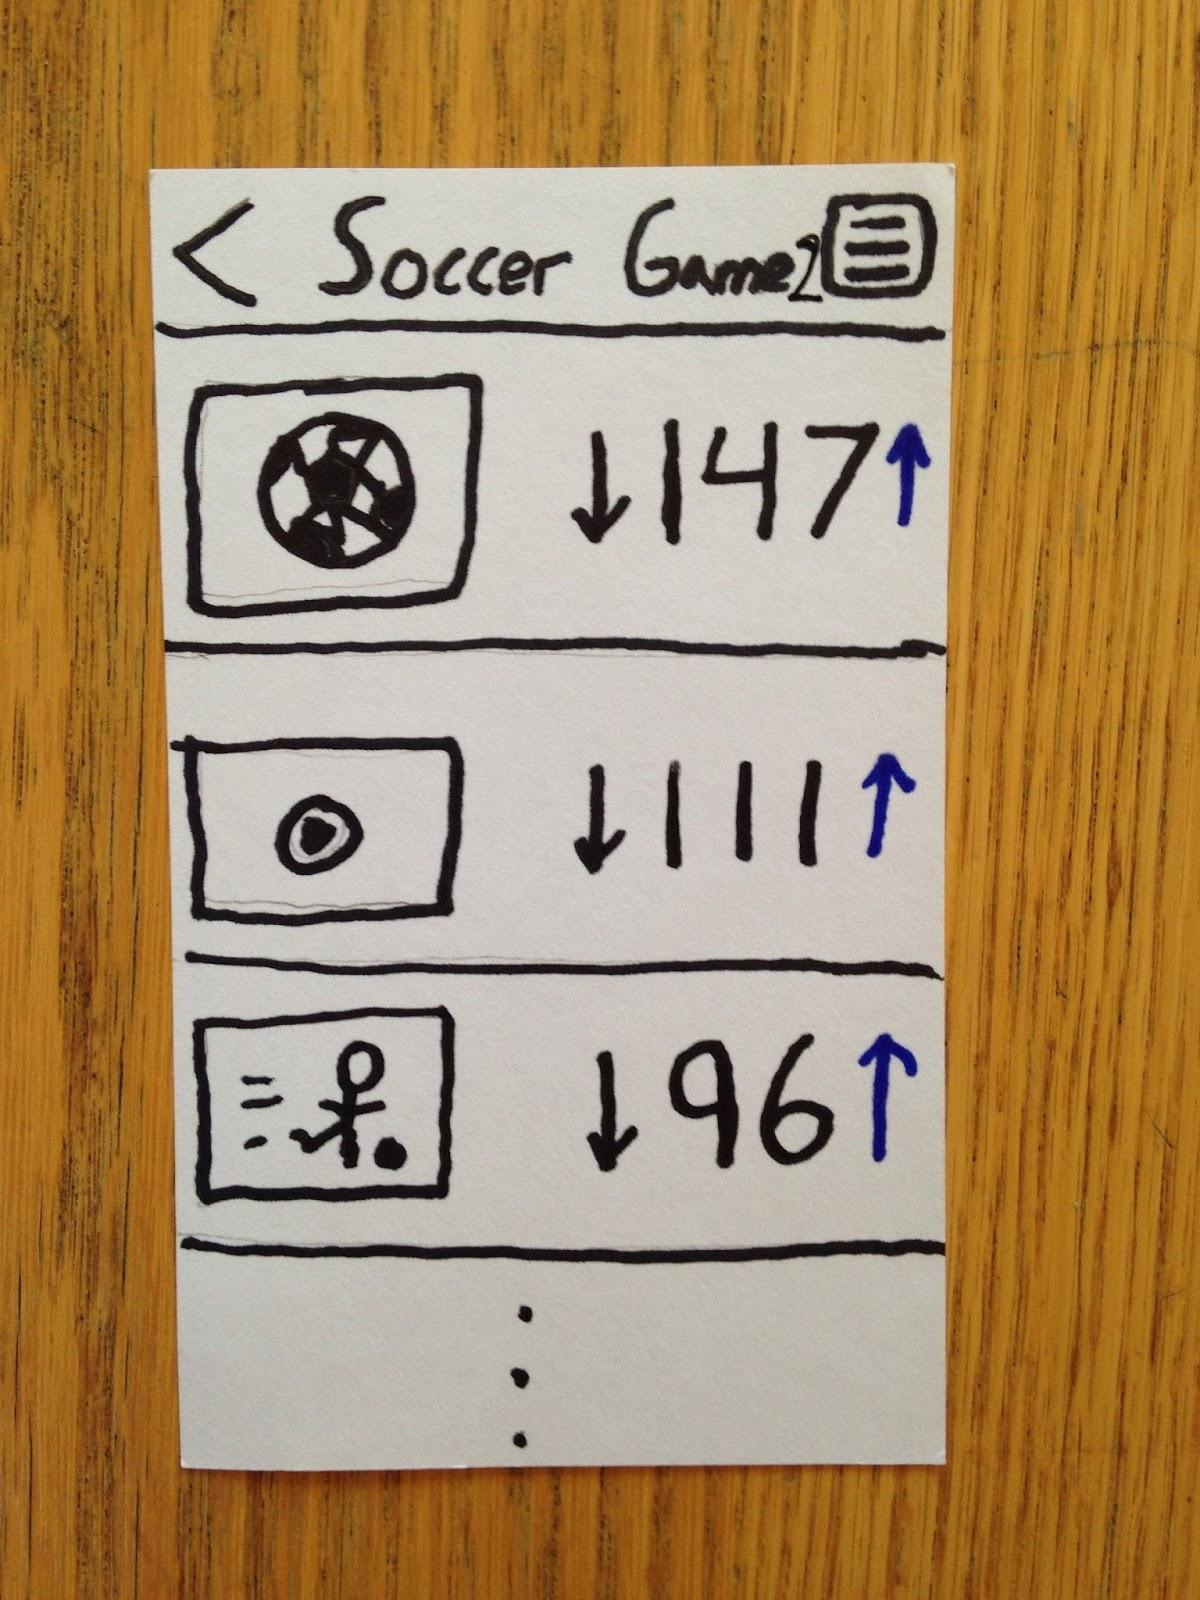 < Soccer Game2
↓147↑
↓111↑
↓96↑